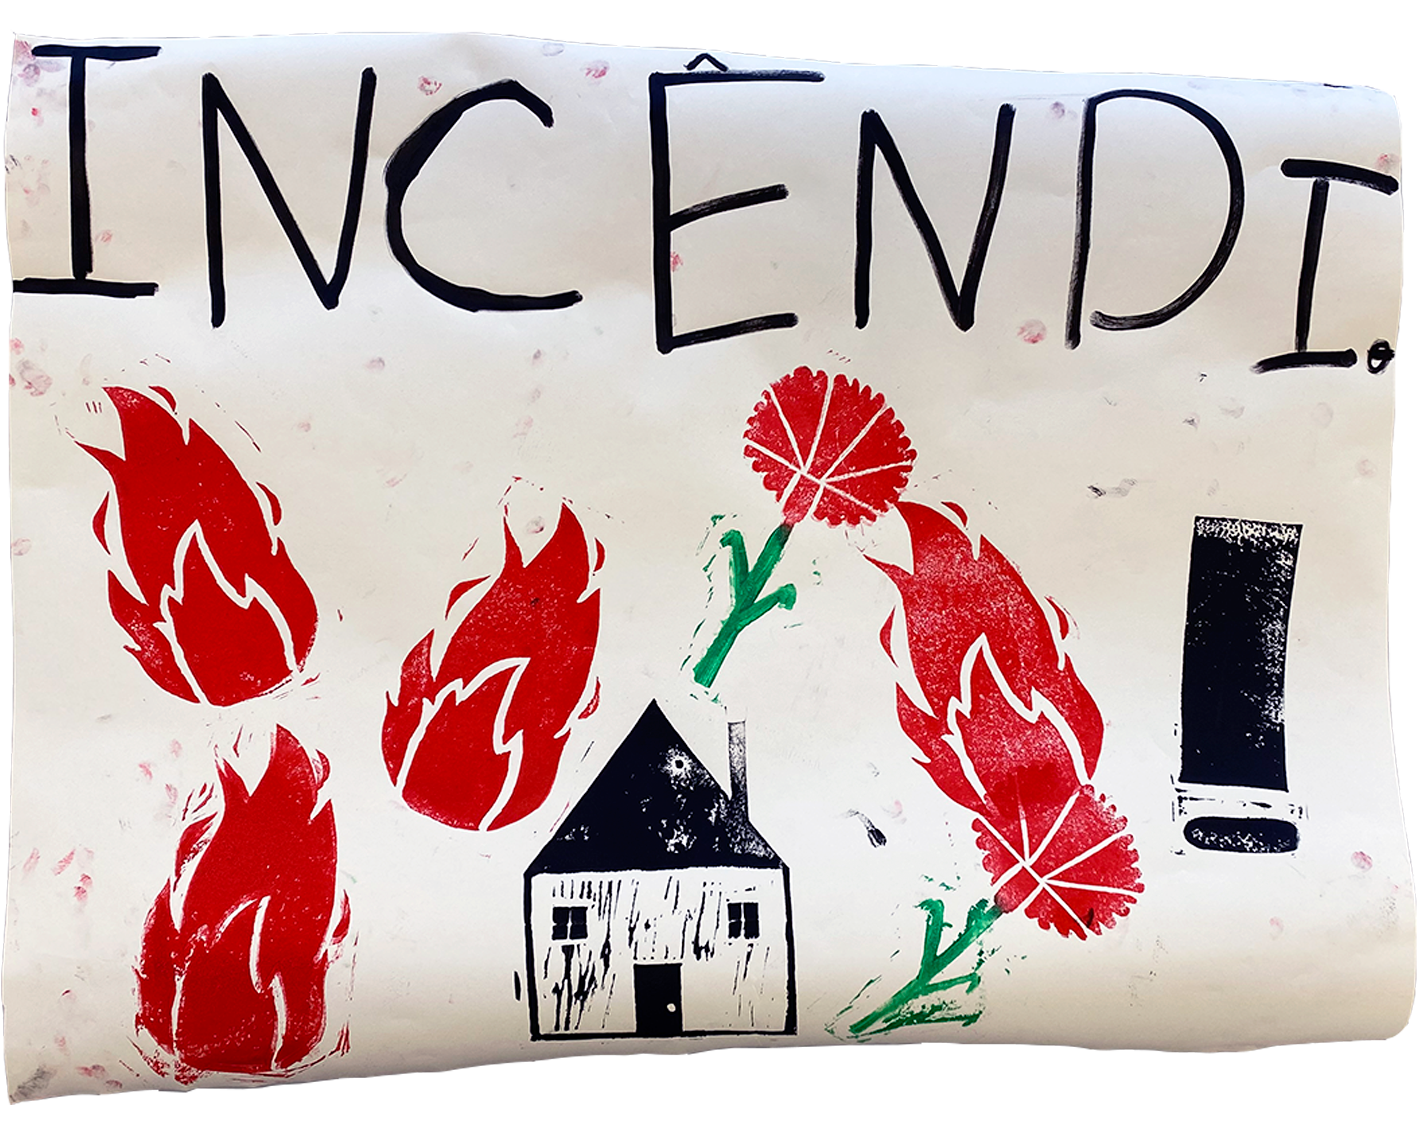 INCÊNDI.
!